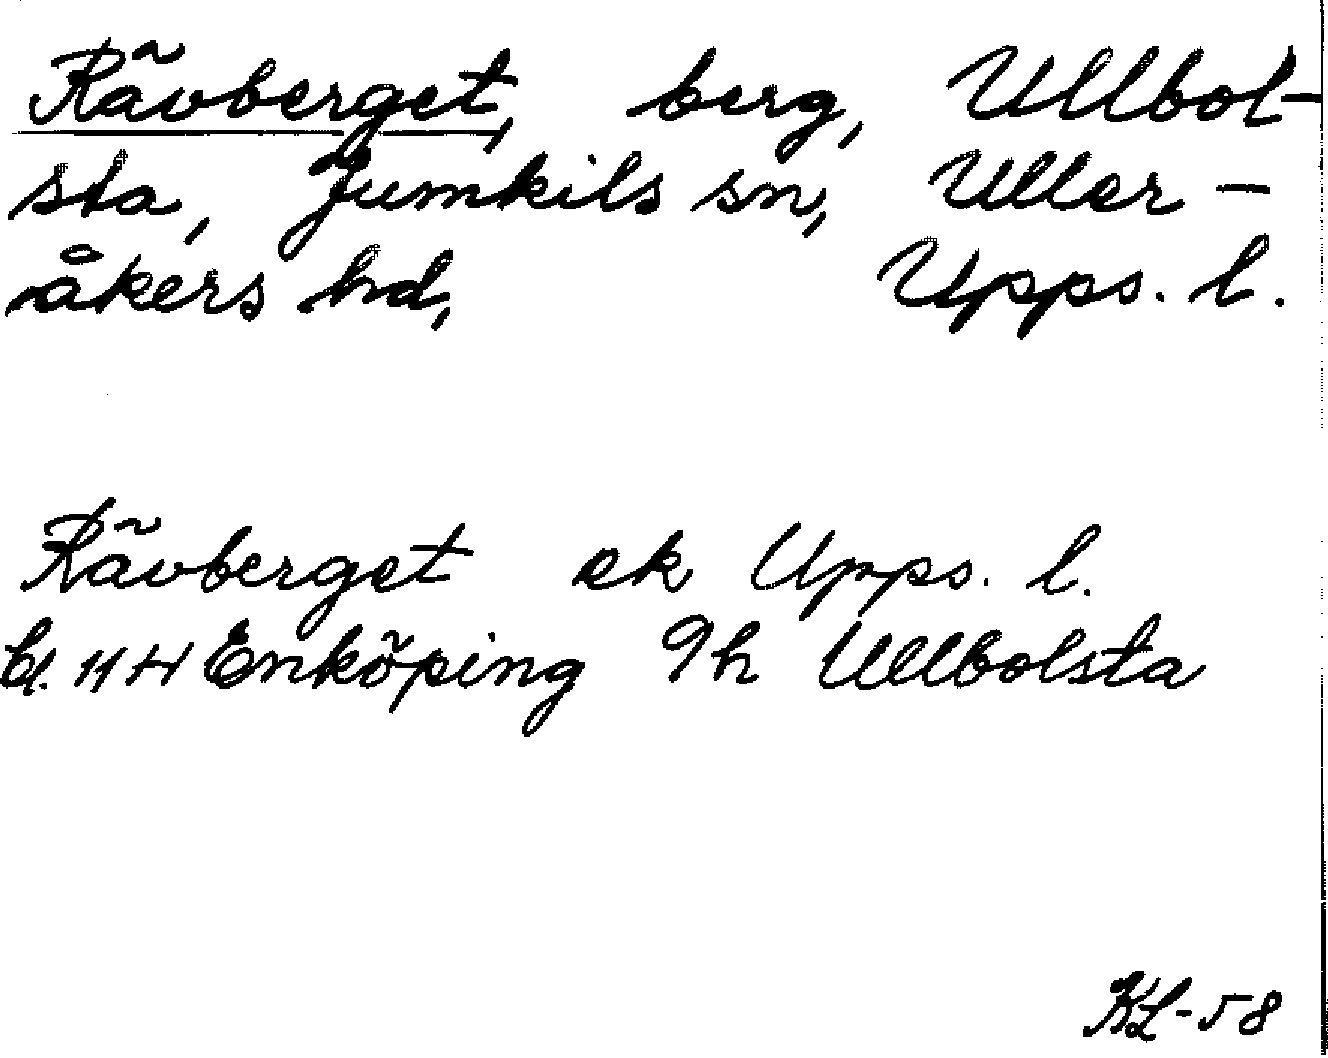 Rävberget, berg, Ullbol-
sta, Jumkils sn, Uller-
åkers hd, Upps. l.
Rävberget ek Upps. l.
bl. 11 H Enköping 9h Ullbolsta
KL-58